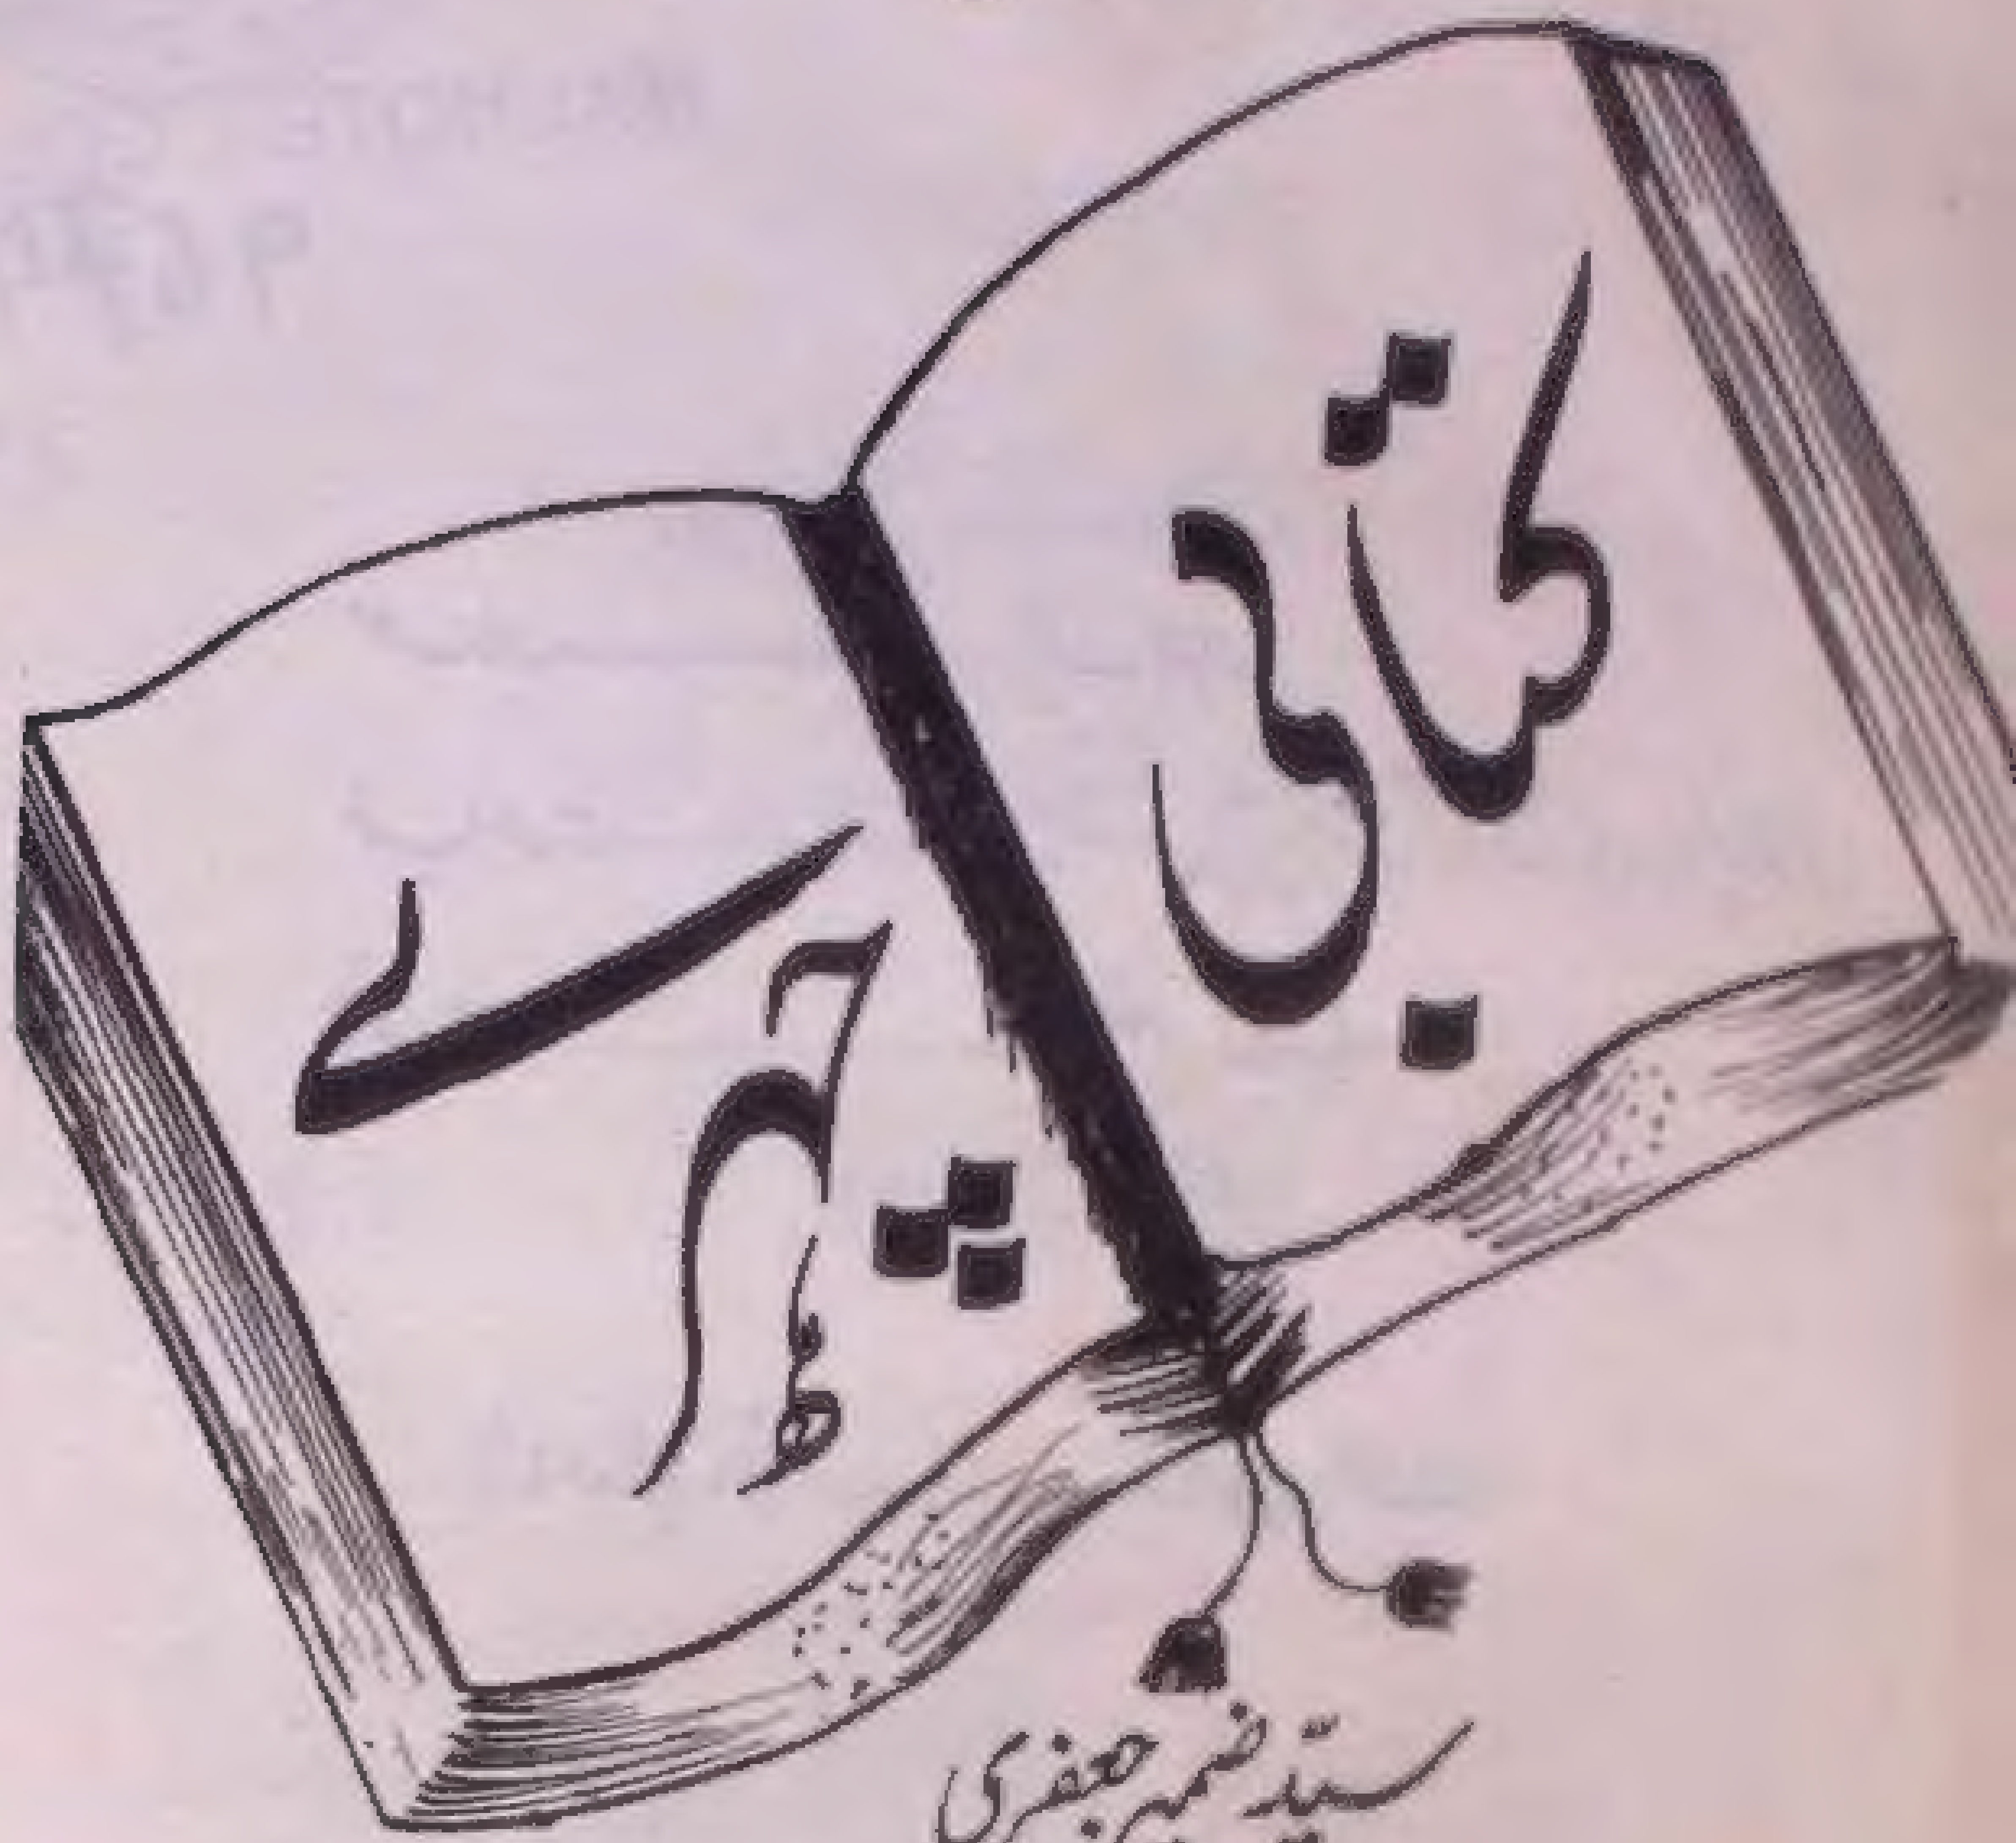 کتابی
چہرے
سیّد ضمیر جعفری